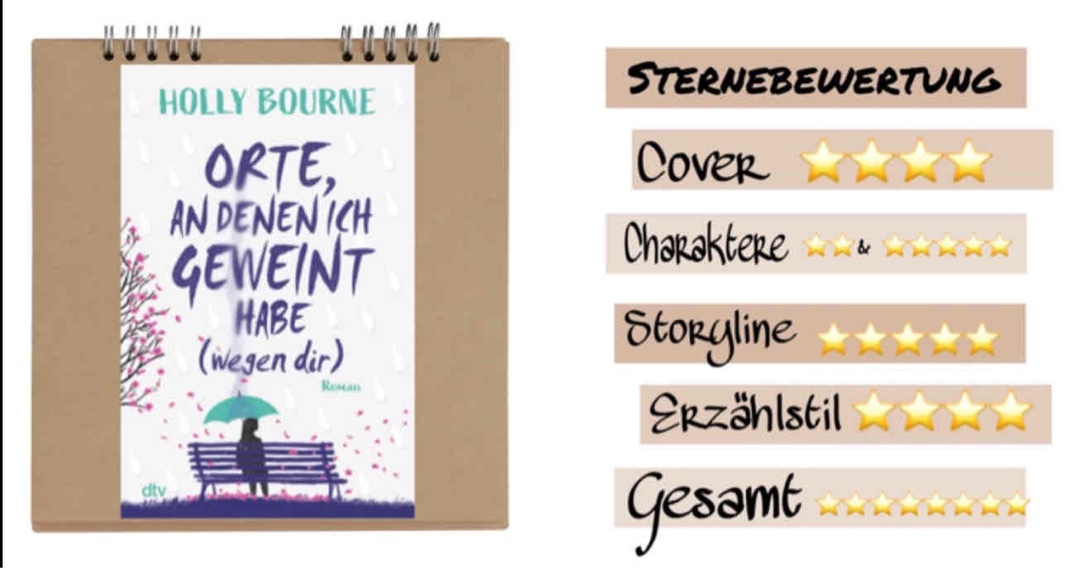 HOLLY BOURNE
ORTE,
AN DENEN ICH
GEWEINT
HABE
(wegen dir)
Roman
dtv
STERNEBEWERTUNG
Cover ⭐⭐⭐⭐
Charaktere ⭐⭐ & ⭐⭐⭐⭐⭐
Storyline ⭐⭐⭐⭐⭐
Erzählstil ⭐⭐⭐⭐
Gesamt ⭐⭐⭐⭐⭐⭐⭐⭐